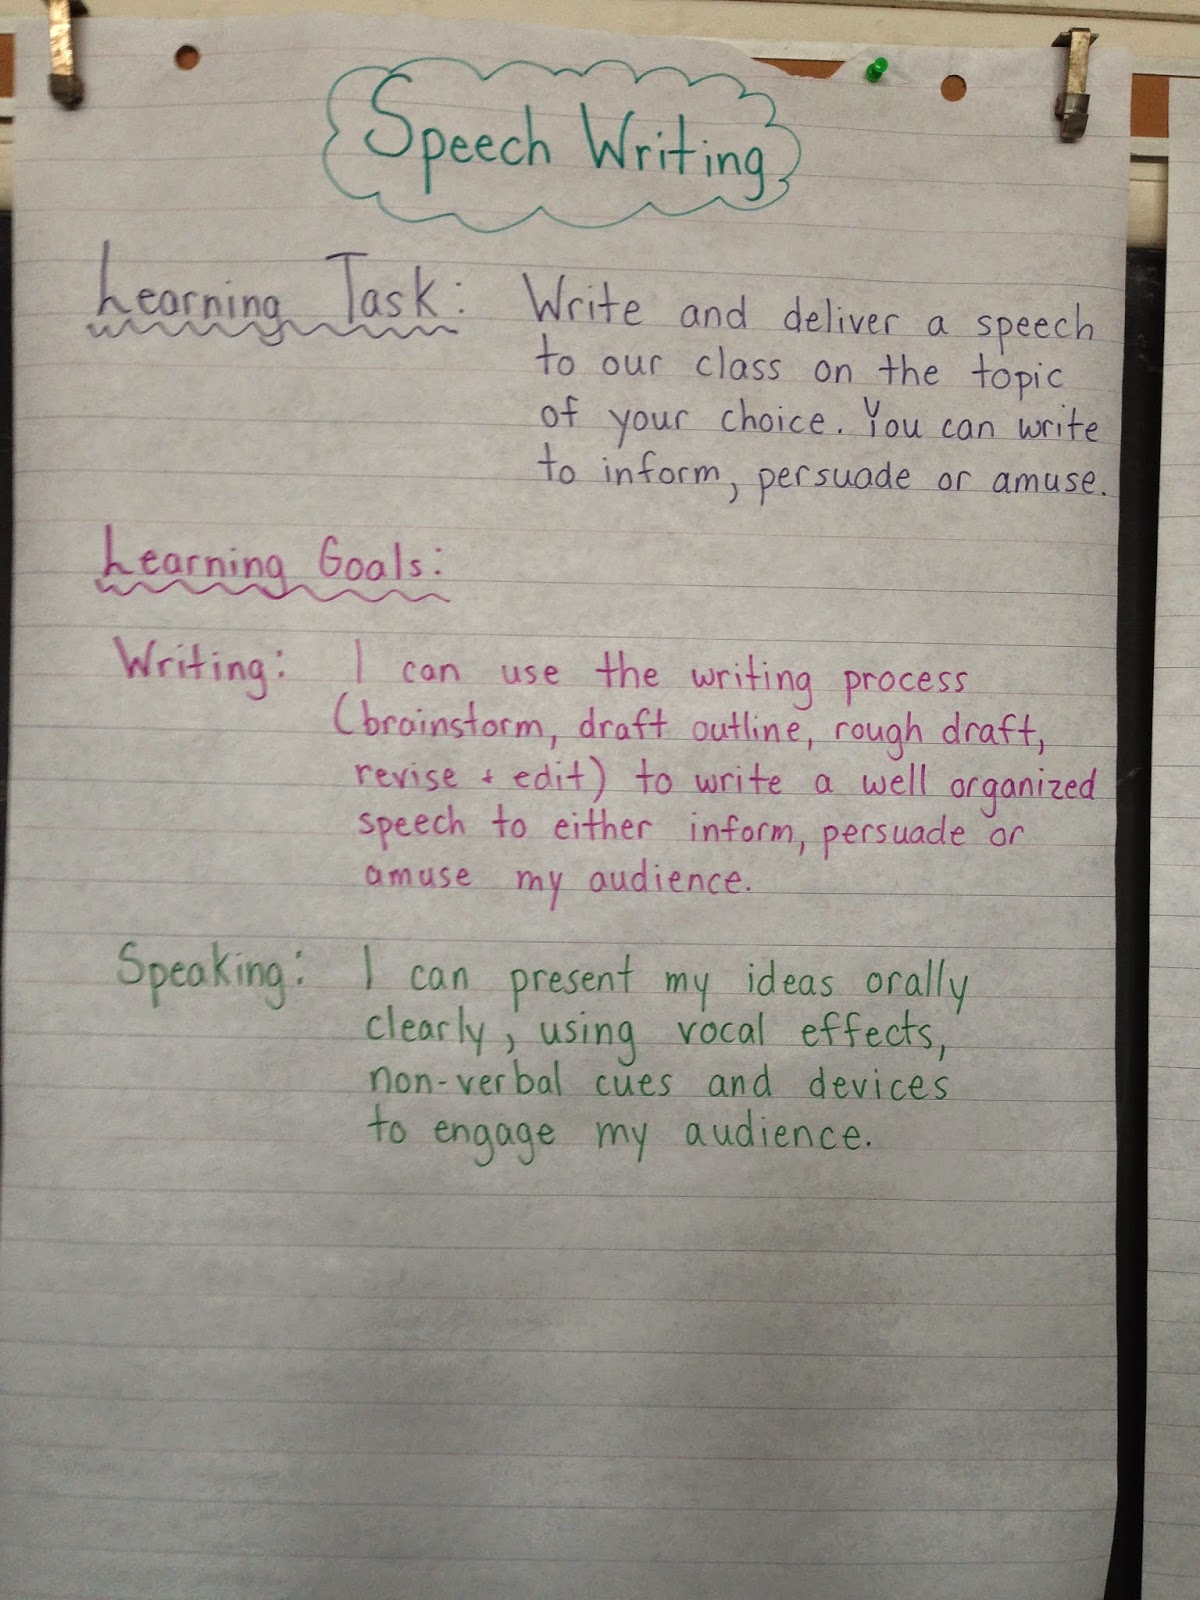 Speech Writing
Learning Task: Write and deliver a speech
to our class on the topic
of your choice. You can write
to inform, persuade or amuse.
Learning Goals:
Writing: I can use the writing process
(brainstorm, draft outline, rough draft,
revise + edit) to write a well organized
speech to either inform, persuade or
amuse my audience.
Speaking: I can present my ideas orally
clearly, using vocal effects,
non-verbal cues and devices
to engage my audience.